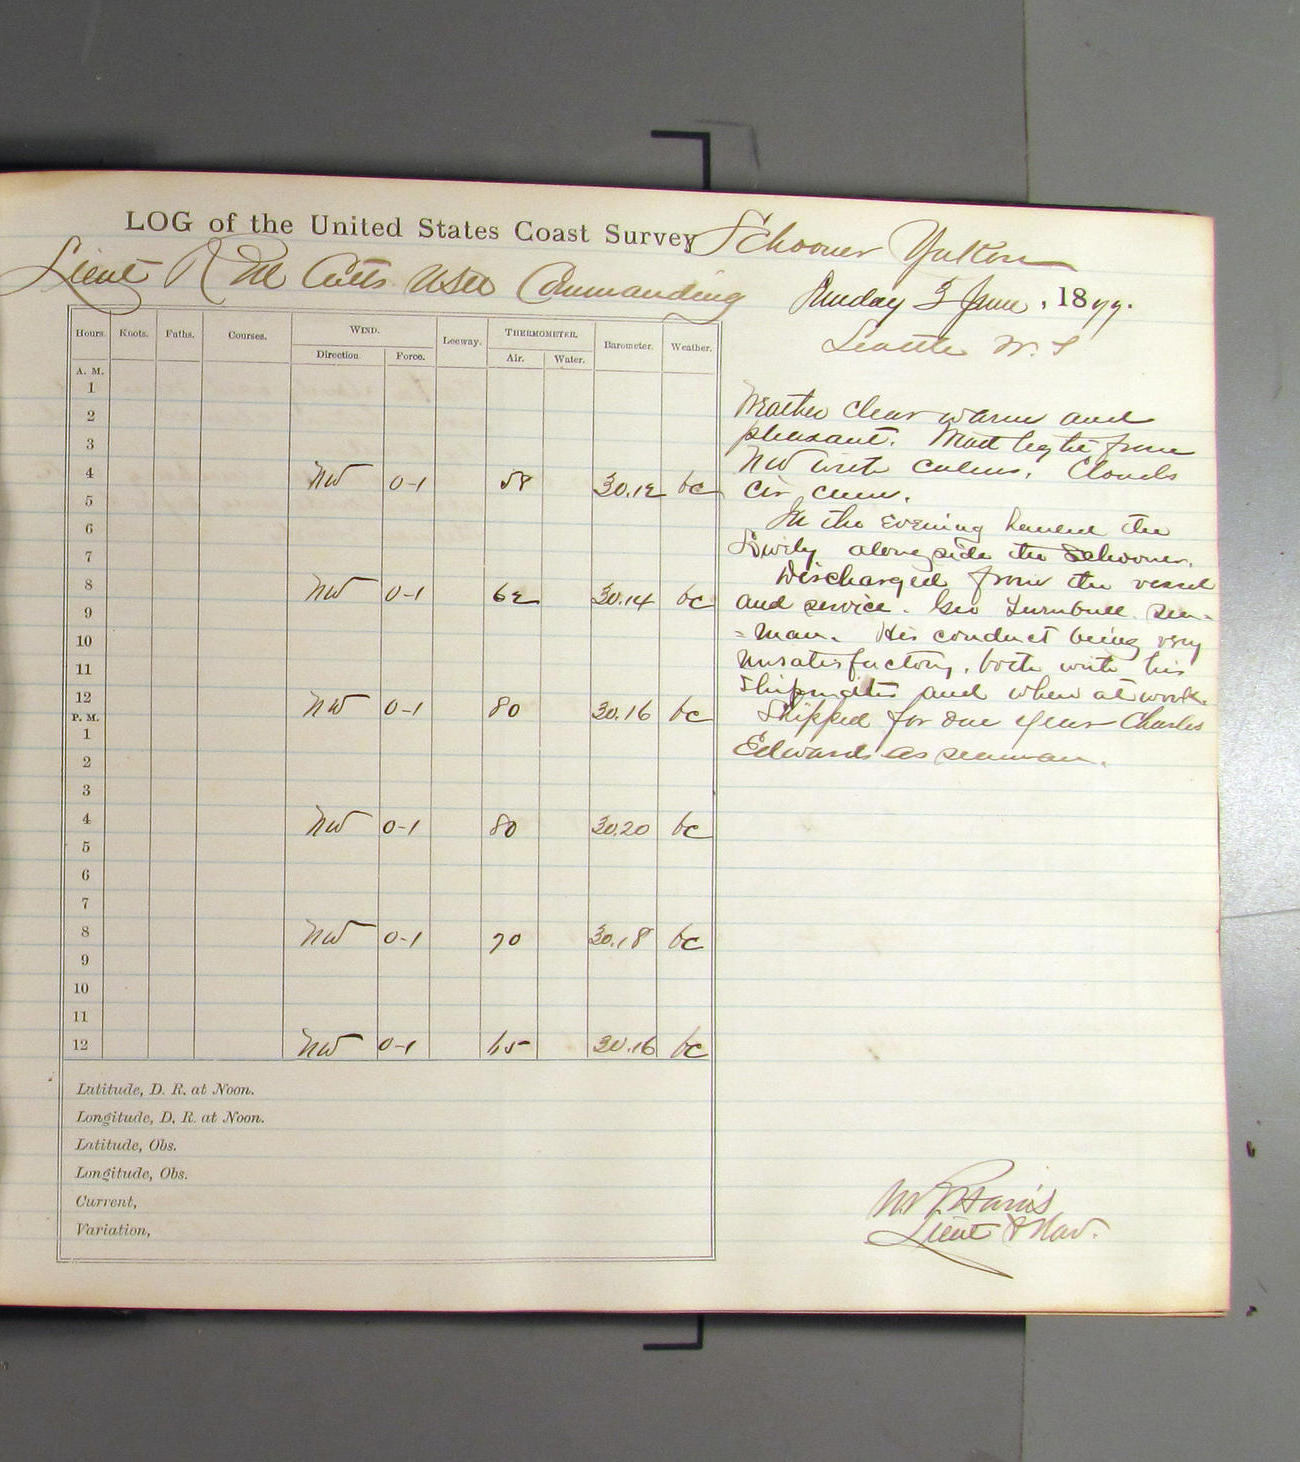 LOG of the United States Coast Survey Schooner Yukon
Lieut R M Cutts USN Commanding Sunday 3 June, 1877.
Seattle W. T
Hours. Knots. Faths. Courses. WIND. Leeway. THERMOMETER. Barometer. Weather.
Direction Force. Air. Water.
A. M.
1
2
3
4 NW 0-1 58 30.12 bc
5
6
7
8 NW 0-1 62 30.14 bc
9
10
11
12 NW 0-1 80 30.16 bc
P. M.
1
2
3
4 NW 0-1 80 30.20 bc
5
6
7
8 NW 0-1 70 30.18 bc
9
10
11
12 NW 0-1 65 30.16 bc
Latitude, D. R. at Noon.
Longitude, D. R. at Noon.
Latitude, Obs.
Longitude, Obs.
Current,
Variation,
Weather clear warm and
pleasant. Wind light from
NW with calms. Clouds
Cir. cum.
In the Evening hauled the
alongside the Schooner.
Discharged from the vessel
and service. Geo Turnbull sea-
-man. His conduct being very
unsatisfactory, both with his
shipmates and when at work.
Shipped for one year Charles
Edwards as seaman.
Lieut & Nav.